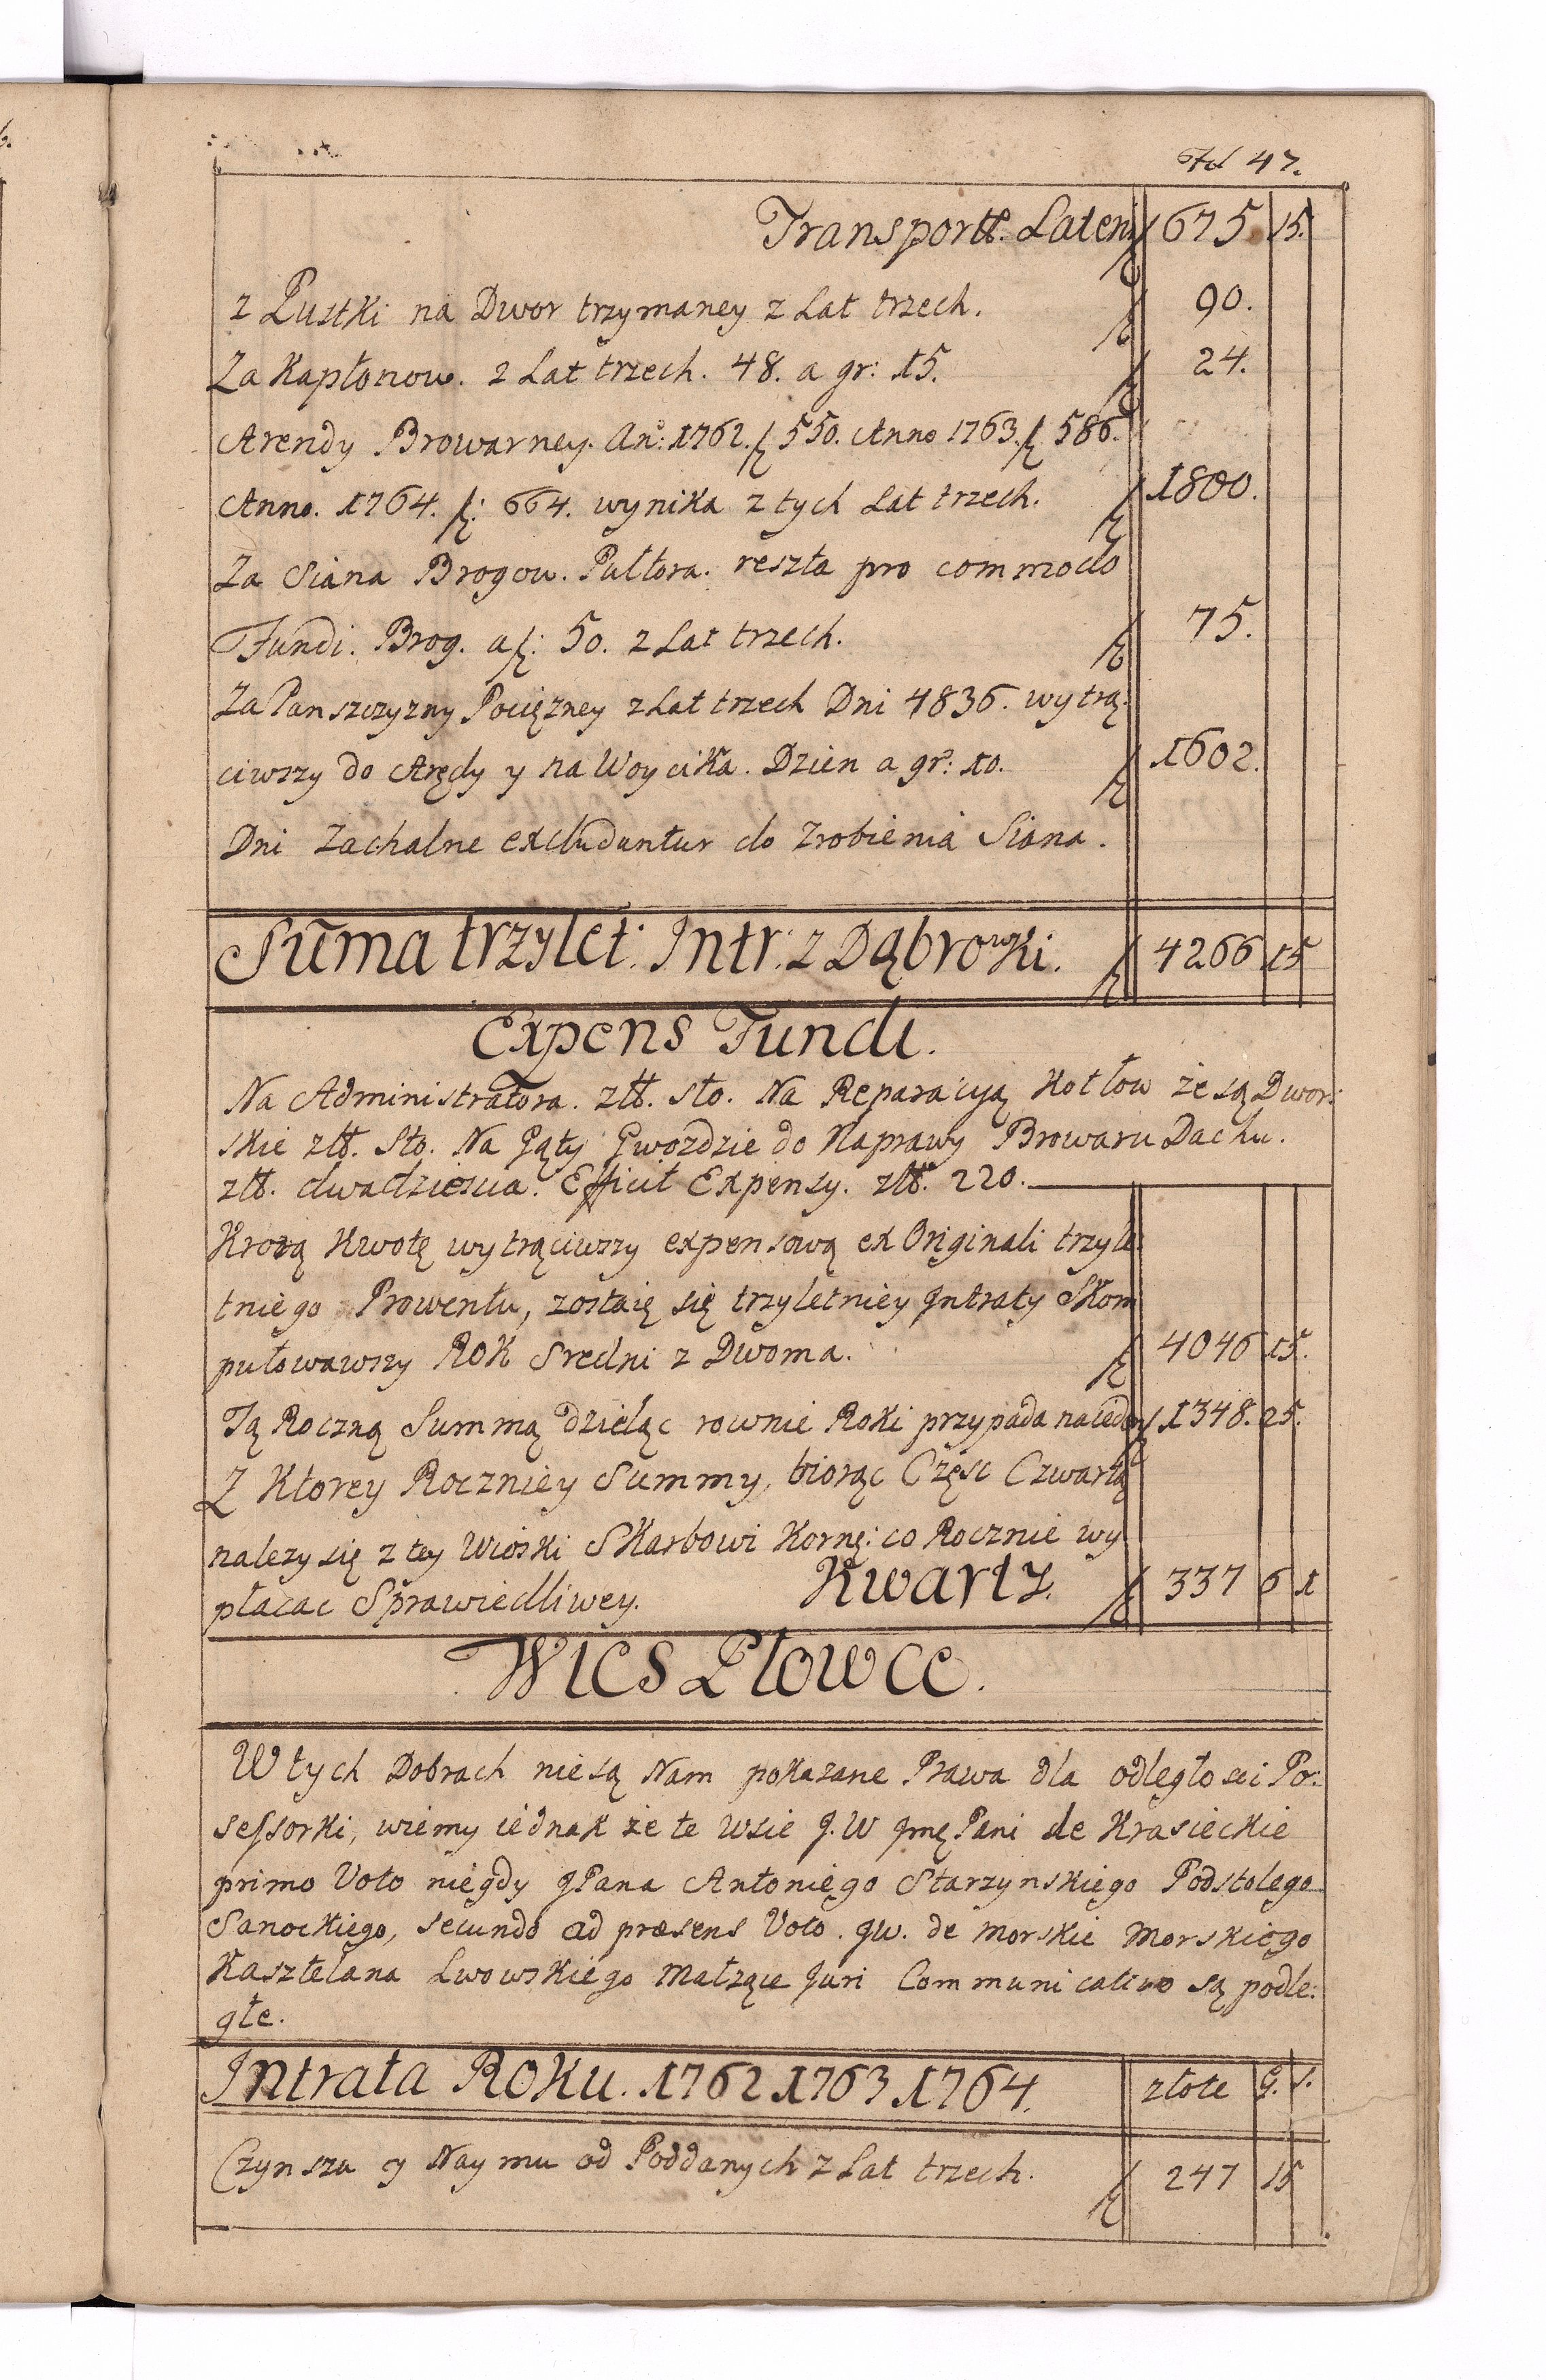 Fol 47.
Transportt. Lateris 675 15.
z Pustki na Dwor trzymaney z Lat trzech. 90.
Za Kapłonow. z Lat trzech. 48. a gr: 15. 24.
Arendy Browarney. Anº: 1762. ƒ 550. Anno 1763. ƒ 586.
Anno. 1764. ƒ: 664. wynika z tych Lat trzech. 1800.
Za Siana Brogow. Pułtora. reszta pro commodo
Fundi. Brog. a ƒ: 50. z Lat trzech. 75.
Za Panszczyzny Pociężney z Lat trzech Dni 4836. wytrą:
ciwszy do Arędy y na Woycika. Dzien a gr: 10. 1602.
Dni Zachalne excluduntur do Zrobienia Siana.
Suma trzylet: Intr: z Dąbrowki. 4266 15
Expens Fundi.
Na Administratora. złł. sto. Na Reparacyą Kotłow że są Dwor:
skie złł. Sto. Na Gąty Gwozdzie do Naprawy Browaru Dachu.
złł. dwadziescia. Efficit Expensy. złł. 220.
Ktorą Kwotę wytrąciwszy expensową ex Originali trzyle:
tniego Prowentu, zostaię się trzyletniey Intraty Skom
putowawszy Rok Sredni z Dwoma. 4046 15.
Tą Roczną Summą dzieląc rownie Roki przypada na ieden 1348. 25.
Z Ktorey Roczniey Summy, biorąc Częsc Czwartą
nalezy się z tey Wioski Skarbowi Kornę: co Rocznie wy
płacac Sprawiedliwey. Kwarty. 337 6 1
Wies Płowce.
W tych Dobrach nie są Nam pokazane Prawa dla odległosci Po:
sessorki, wiemy iednak że te Wsie J.W Jmę Pani de Krasieckie
primo Voto niegdy JPana Antoniego Starzynskiego Podstolego
Sanockiego, secundo ad præsens Voto. JW. de Morskie Morskiego
Kasztelana Lwowskiego Małząę Juri Communicativo są podle:
głe.
Intrata Roku. 1762 1763 1764. złote g. s.
Czynszu y Naymu od Poddanych z Lat trzech. 247 15